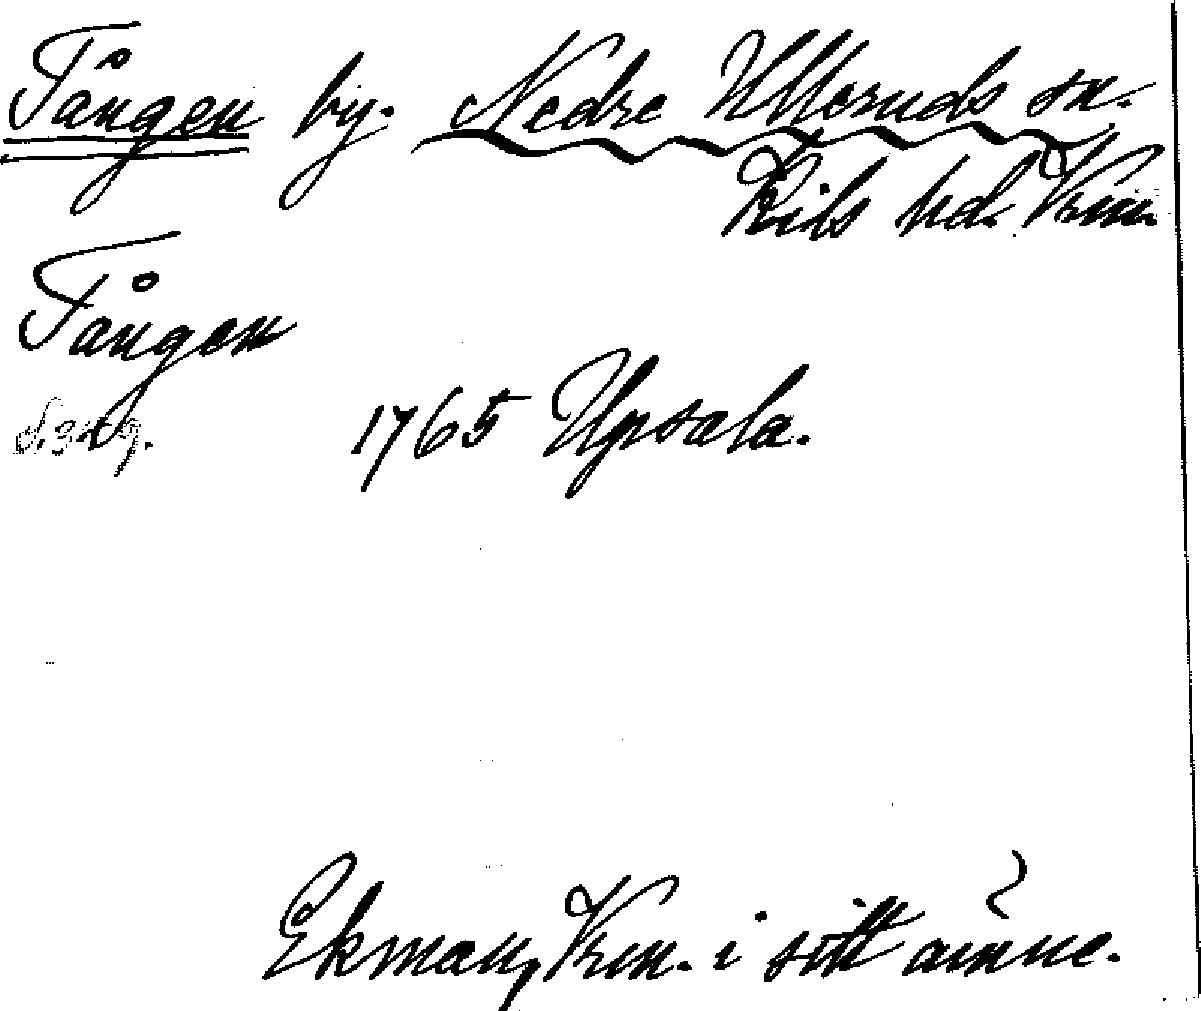 Tången by. Nedre Ulleruds sn.
Kils hd. Vrm.
Tången
S. 329. 1765 Upsala.
Ekman, Vrm. i sitt ämne.